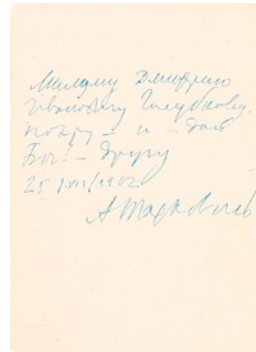 Милому Дмитрию
Ивановичу Голубкову.
поэту – и – дай
Бог! – другу
25
А Тарковский